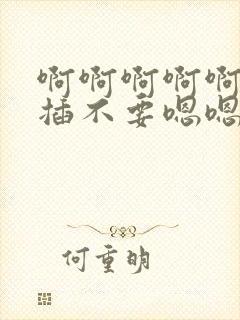 啊啊啊啊啊
插不要嗯嗯
何重明